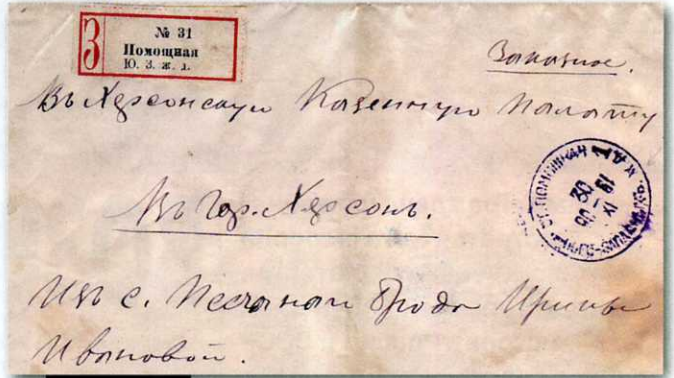 З
№ 31
Помощная
Ю. З. ж. д.
Заказное.
Въ Херсонскую Казенную Палату
Въ гор. Херсонъ.
ПОМОЩНАЯ
30
XI
Изъ с. Песчаный Брода Ирины
Ивановой.